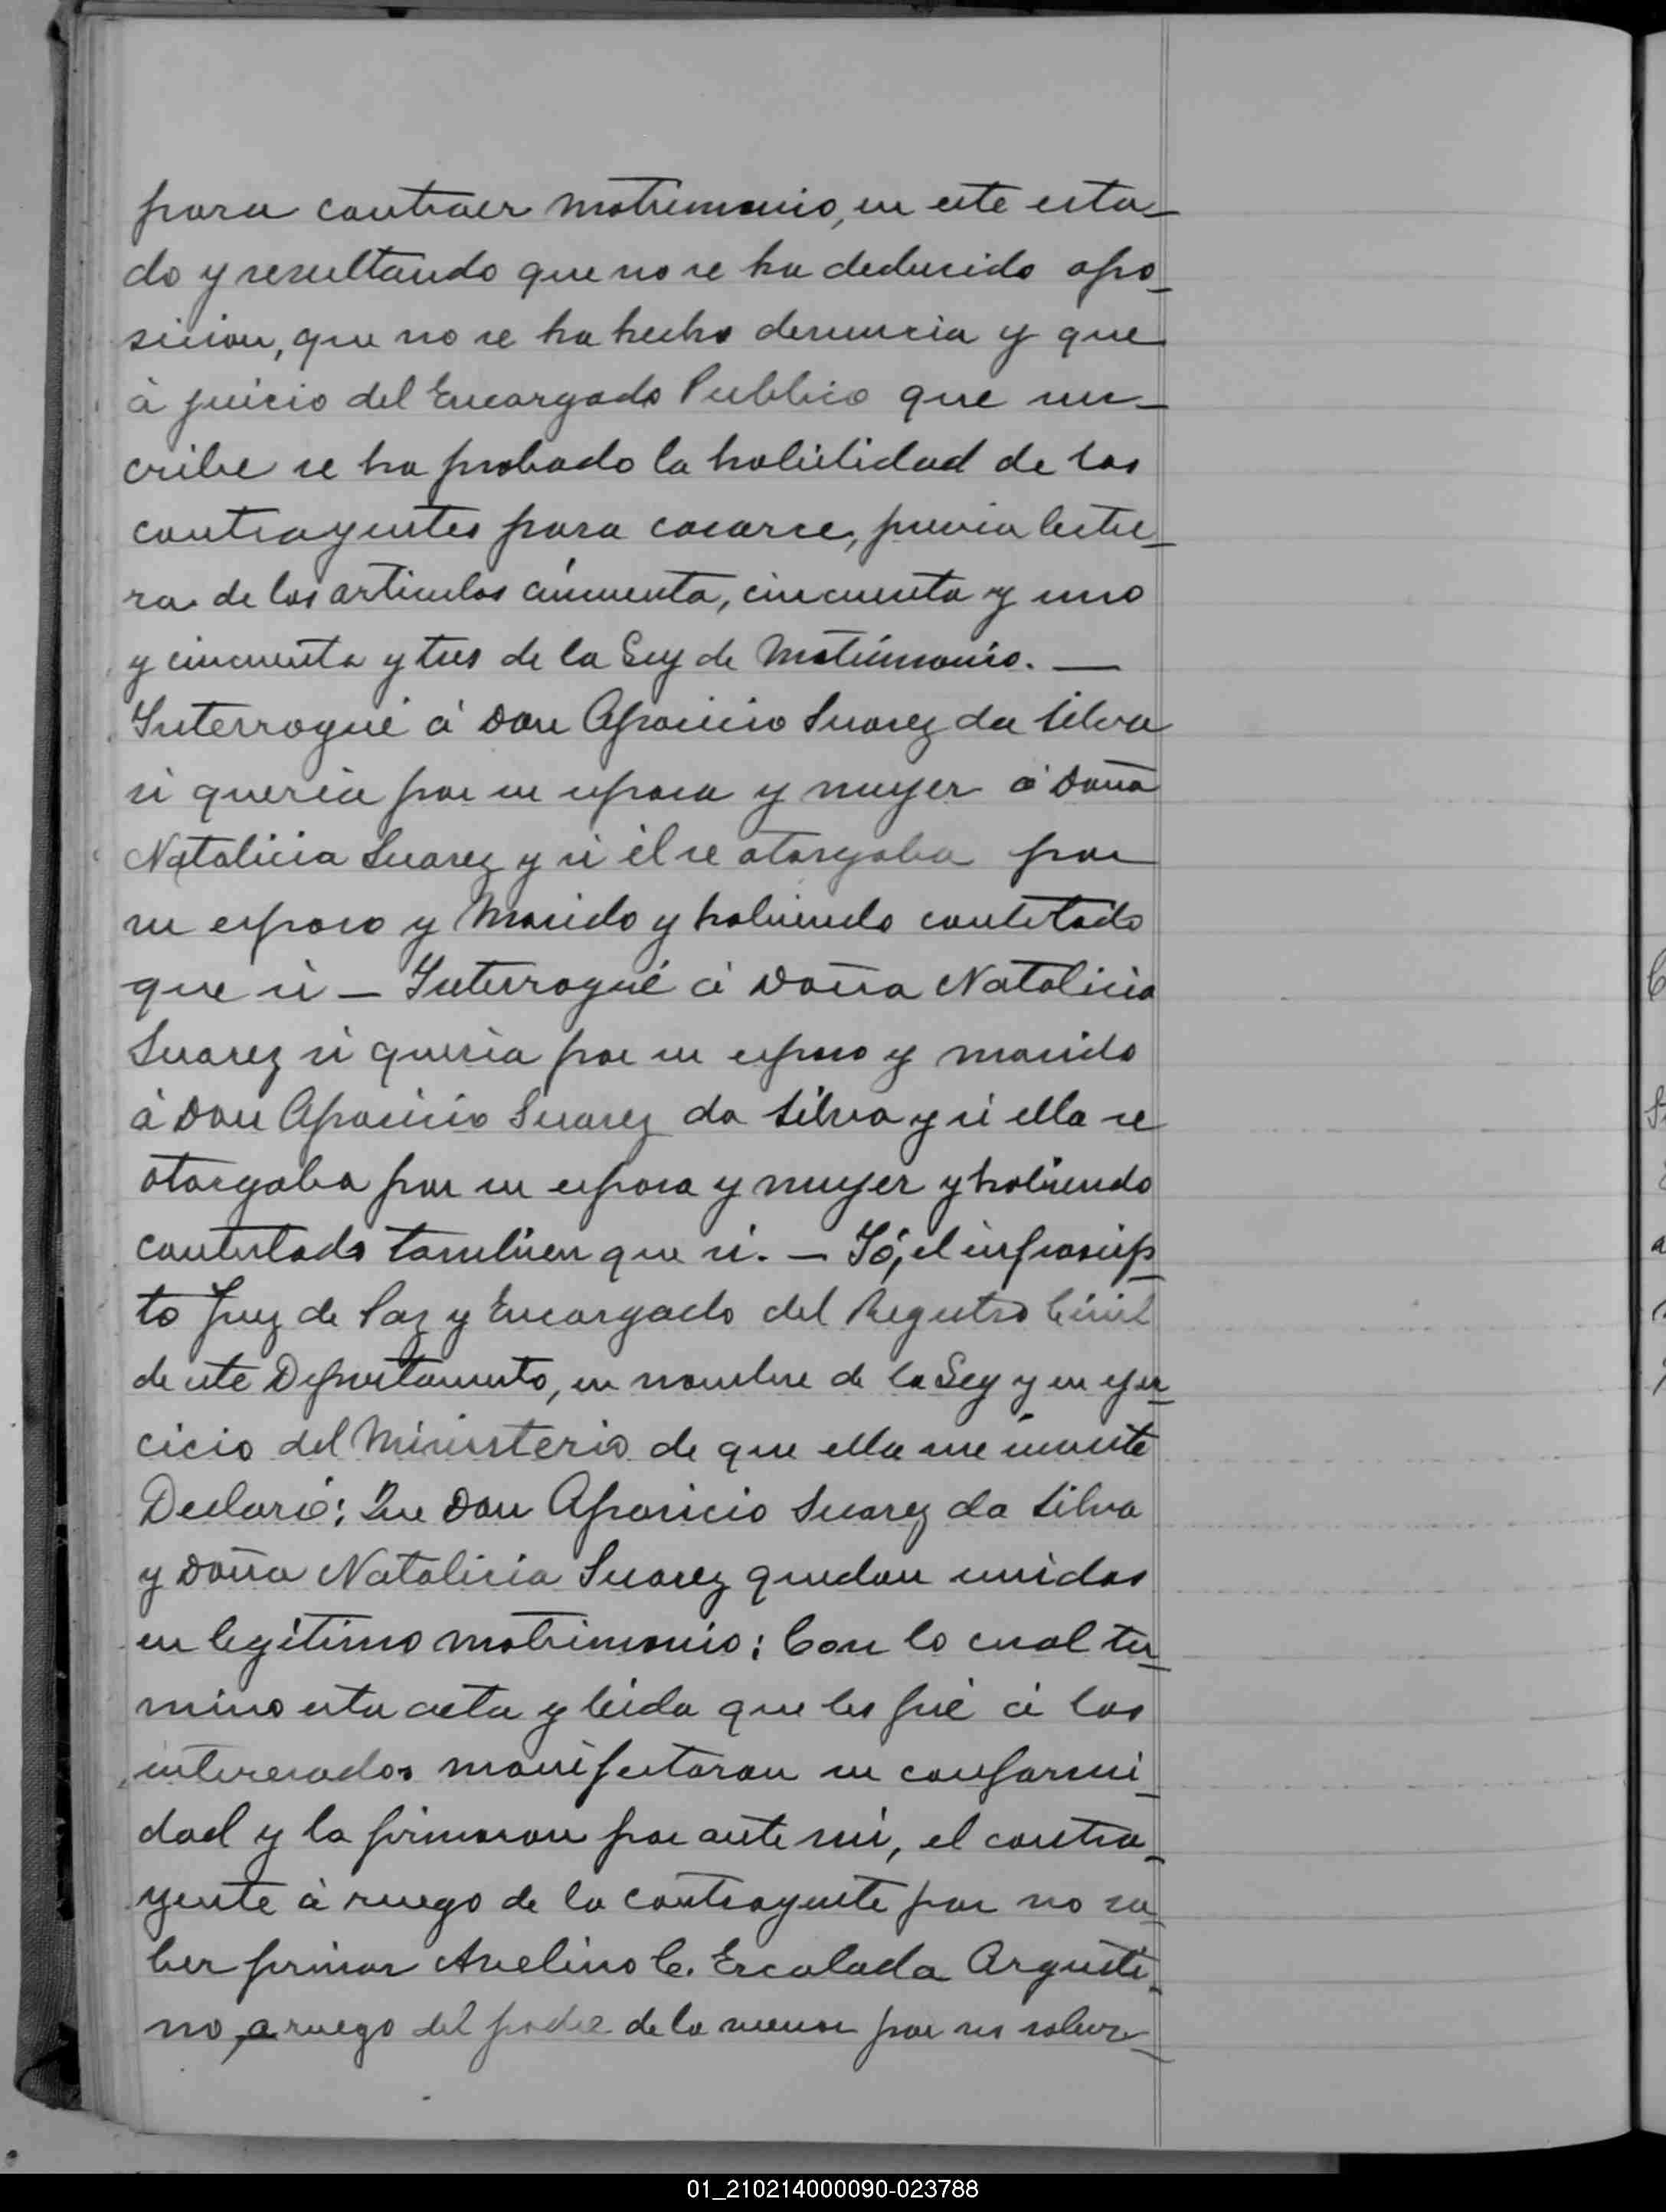 para contraer matrimonio, en este esta-
do y resultando que no se ha deducido opo-
sicion, que no se ha hecho denuncia y que
à juicio del Encargado Publico que sus-
cribe se ha probado la habilidad de los
contrayentes para casarse, previa lectu-
ra de los articulos cincuenta, cincuenta y uno
y cincuenta y tres de la Ley de Matrimonio. —
Interrogué á Don Aparicio Suarez da Silva
si queria por su esposa y muger á Doña
Natalicia Suarez y si él se otorgaba por
su esposo y Marido y habiendo contestado
que si — Interrogué á Doña Natalicia
Suarez si queria por su esposo y marido
à Don Aparicio Suarez da Silva y si ella se
otorgaba por su esposa y muger y habiendo
contestado tambien que si. — Yó, el infrascrip-
to Juez de Paz y Encargado del Registro Civil
de este Departamento, en nombre de la Ley y en ejer-
cicio del Ministerio de que ella me inviste
Declaro: Que Don Aparicio Suarez da Silva
y Doña Natalicia Suarez quedan unidos
en legitimo matrimonio; Con lo cual ter-
mino esta acta y leida que les fué á los
interesados manifestaron su conformi-
dad y la firmaron por ante mi, el contra-
yente à ruego de la contrayente por no sa-
ber firmar Avelino C. Escalada Argenti-
no, a ruego del padre de la menor por no saber-
01_210214000090-023788